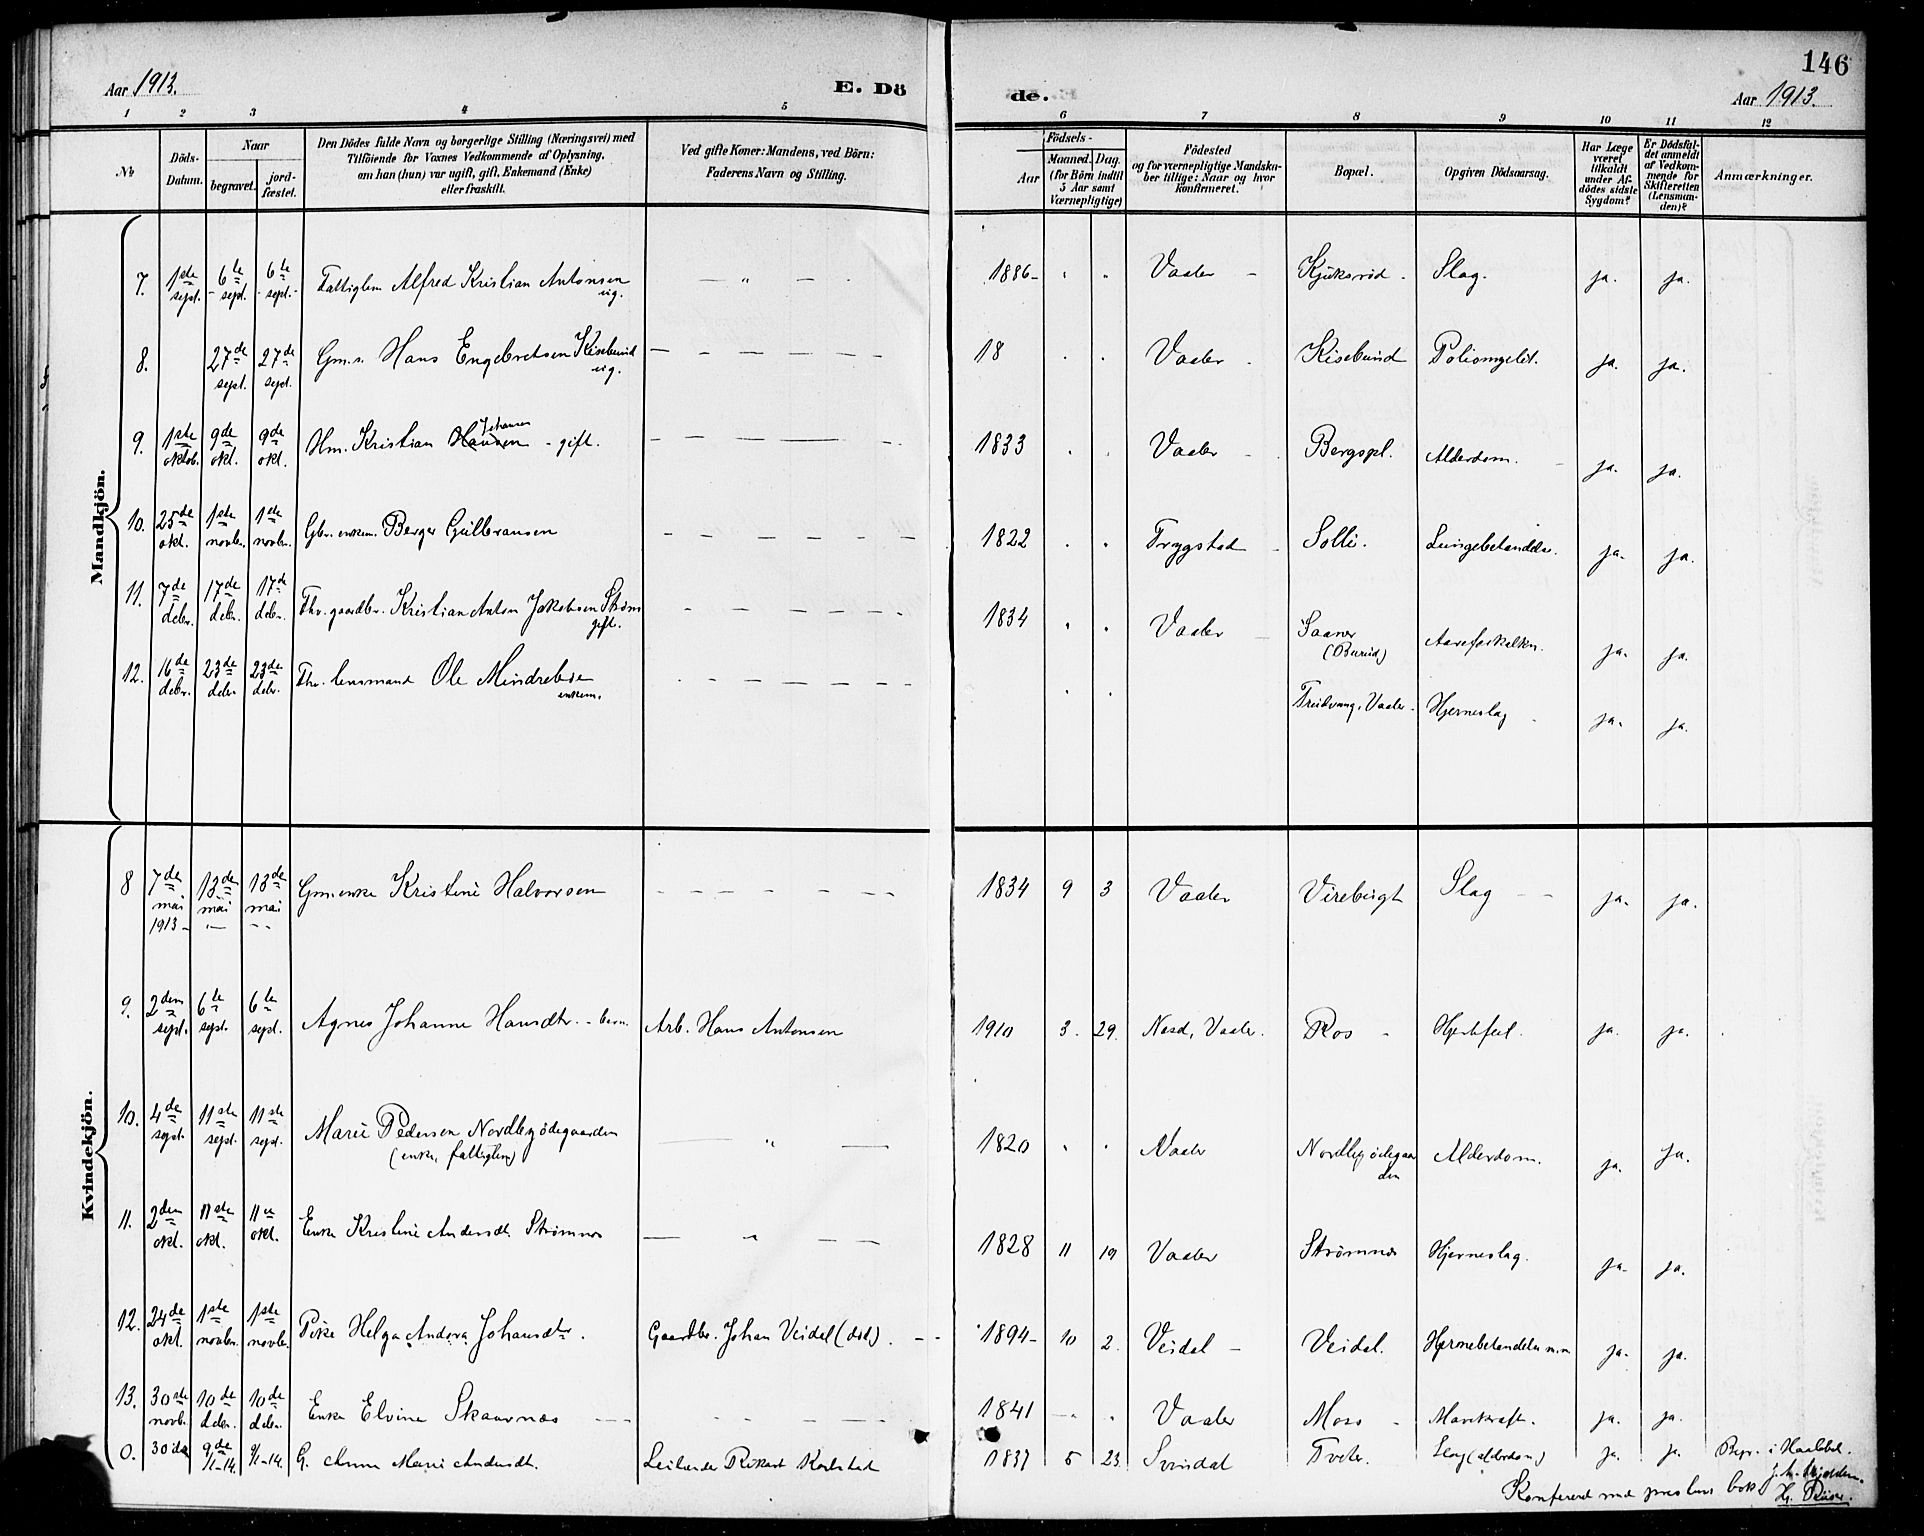 146
Aar 1913.
E. Dö
de.
Aar 1913.
1 2 3 4 5 6 7 8 9 10 11 12
No
Döds-Datum.
Naar
begravet.
jord-fæstet.
Den Dödes fulde Navn og borgerlige Stilling (Næringsvei) med
Tilföiende for Voxnes Vedkommende af Oplysning,
om han (hun) var ugift, gift, Enkemand (Enke)
eller fraskilt.
Ved gifte Koner: Mandens, ved Börn:
Faderens Navn og Stilling.
Födsels-
Aar
Maaned. Dag.
(for Börn indtil
5 Aar samt
Værnepligtige)
Födested
og for værnepligtige Mandska-
ber tillige: Naar og hvor
Konfirmeret.
Bopæl.
Opgiven Dödsaarsag.
Har Læge
været
tilkaldt
under Af-
dödes sidste
Sygdom?
Er Dödsfal-
det anmeldt
af Vedkom-
mende for
Skifteretten
(Lensman-
den)?
Anmærkninger.
Mandkjön.
7. 1ste sept. 6te sept. 6te sept. Fattiglem Alfred Kristian Antonsen ug. — " — 1886 - " " Vaaler - Kjuksrud - Slag. ja. ja.
8. 27de sept. 27de sept. Gm.s. Hans Engebretsen Kisebund ug. 18 " " Vaaler - Kisebund Poliomyelit. ja. ja.
9. 1ste oktob. 9de okt. 9de okt. Hm. Kristian Hansen Johansen - gift. 1833 " " Vaaler - Bergspl. Alderdom. ja. ja.
10. 25de okt. 1ste novbr. 1ste novbr. Gbr. enkem. Berger Gulbransen 1822 " " Trygstad - Solli. Lungebetændelse. ja. ja.
11. 7de debr. 17de debr. 17de debr. Fhv. gaardbr. Kristian Anton Jakobsen Strøm gift. 1834 " " Vaaler - Saaner (Burud) Aareforkalkn. ja. ja.
12. 16de debr. 23de debr. 23de debr. Fhv. lensmand Ole Mindrebøe enkem. " " Fredvang, Vaaler. Hjerneslag - ja. ja.
Kvindekjön.
8 7de mai 1913 - 13de mai 13de mai Gm.enke Kristine Halvorsen 1834 9 3 Vaaler Virebugt Slag - - ja. ja.
9. 2den sept. 6te sept. 6te sept. Agnes Johanne Hansdtr. - barn. Arb. Hans Antonsen 1910 3. 29. Nesd, Vaaler. Ros - Hjertefeil. ja. ja.
10. 4de sept. 11ste sept. 11ste sept. Marie Pedersen Nordbyødegaarden (enke, fattiglem) — " — 1820 " " Vaaler Nordbyødegaarden Alderdom. ja. ja.
11. 2den okt. 11ste okt. 11te okt. Enke Kristine Andersdt. Strømnes — " — 1828 11 19 Vaaler Strømnes Hjerneslag. ja. ja.
12. 24de okt. 1ste novbr. 1ste novbr. Pike Helga Andora Johansdtr. Gaardbr. Johan Veidal (død). 1894 - 10 2. Veidal - Veidal. Hjernebetændelse m.m ja. ja.
13. 30te novb. 10de debr. 10de debr. Enke Elvine Skaarnæs 1841 - " " Vaaler Moss - Marekraft. ja. ja.
0. 30 de 9de /1-14. 9/1-14. G. Anna Marie Andersdt. Leilænder Rikard Karlstad 1837 5 23 Svindal Tveter. Slag (alderdom) ja. ja. Begr. i Haabøl.
Konfereret med prestens bok